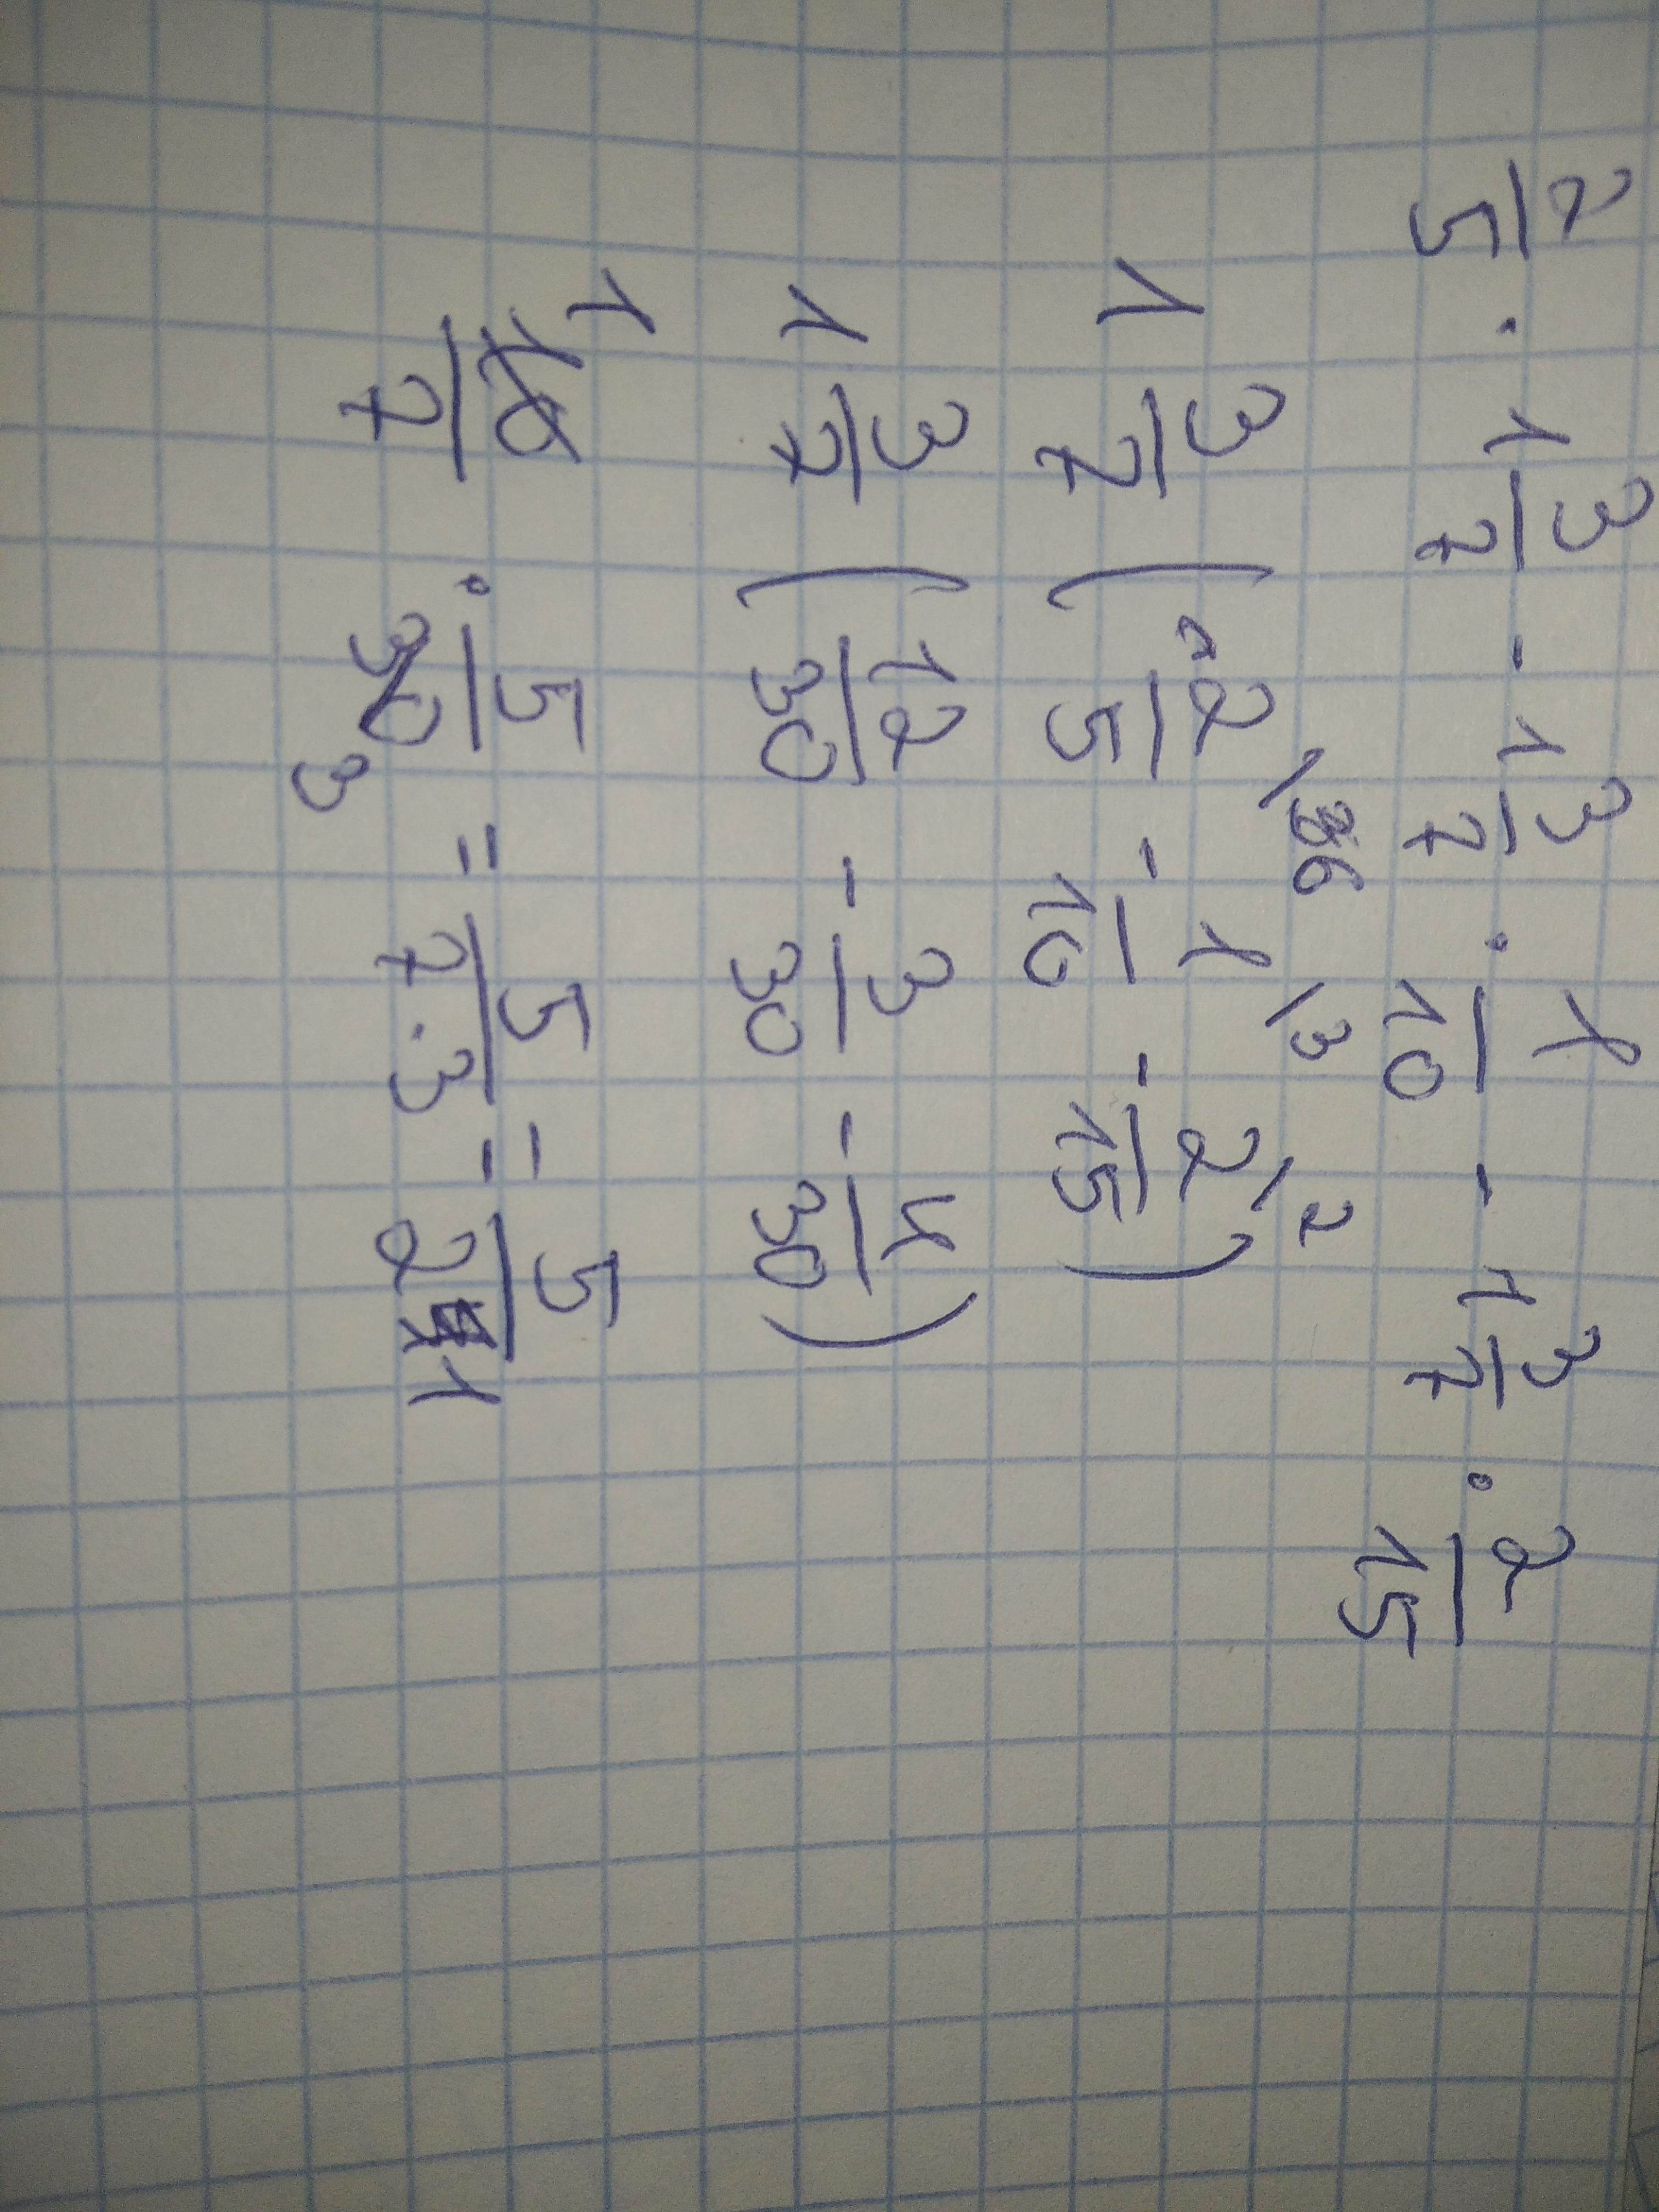 2/5 · 1 3/7 - 1 3/7 · 1/10 - 1 3/7 · 2/15
1 3/7 (2/5 \6 - 1/10 \3 - 2/15 \2)
1 3/7 (12/30 - 3/30 - 4/30)
10/7 1 · 5/30 3 = 5/7·3 = 5/21